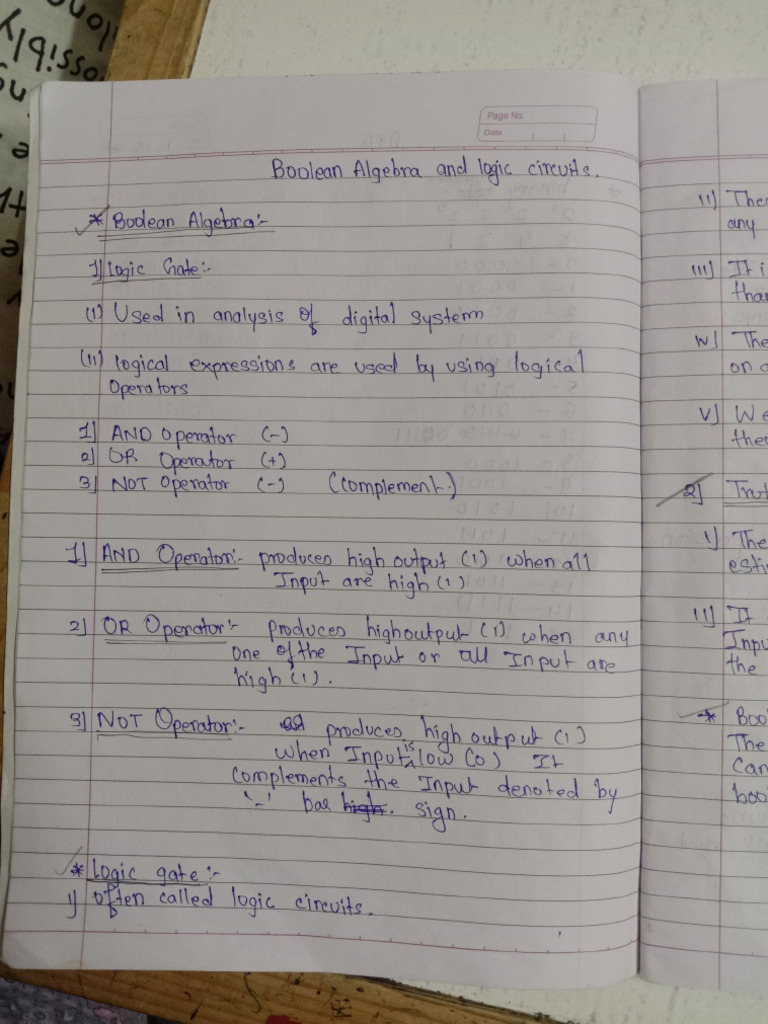 Page No.
Date
Boolean Algebra and logic circuits.
* Boolean Algebra:-
1] Logic Gate:-
(i) Used in analysis of digital system
(ii) logical expressions are used by using logical
Operators
1] AND Operator (-)
2] OR Operator (+)
3] NOT Operator (-) (complement.)
1] AND Operator:- produces high output (1) when all
Input are high (1)
2] OR Operator:- produces high output (1) when any
one of the Input or all Input are
high (1).
3] NOT Operator:- produces high output (1)
when Input is low (0) It
complements the Input denoted by
'-' bar high. sign.
* logic gate:-
1) Often called logic circuits.
II]
any
III] It i
than
IV] The
on
V] We
2]
I] The
esti
II] It
Inpu
the
* Boo
The
Can
boo